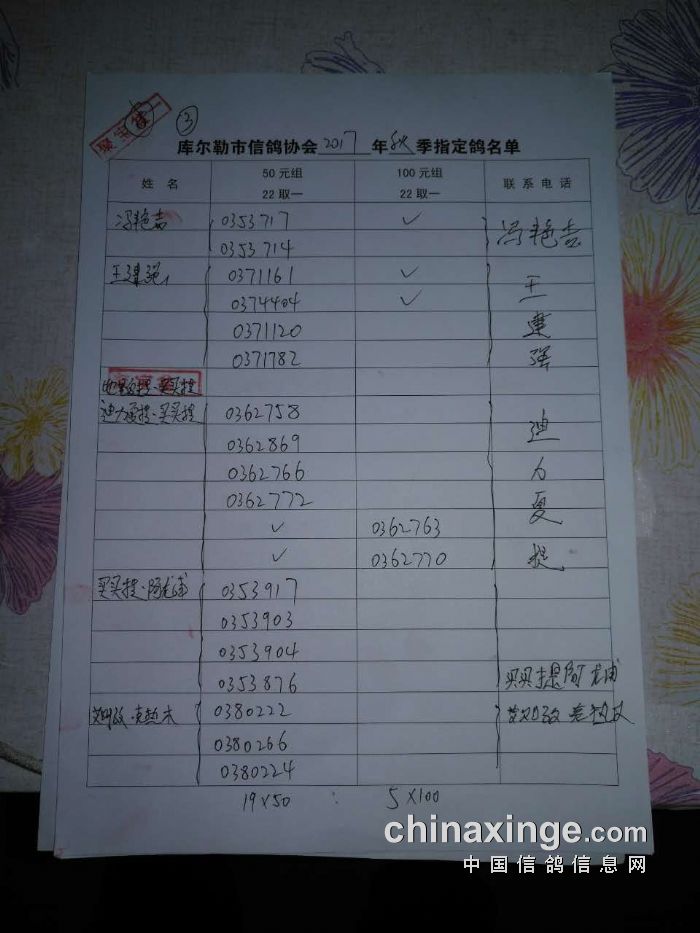 ③
库尔勒市信鸽协会2017年秋季指定鸽名单
姓名 50元组 22取一 100元组 22取一 联系电话
冯艳吉 0353717 ✓ 冯艳吉
0353714
王建强 0371161 ✓ 王建强
0374404 ✓
0371120
0371782
迪力夏提·买买提 0362758 迪力夏提
0362869
0362766
0362772
✓ 0362763
✓ 0362770
买买提·阿尤甫 0353917
0353903
0353904
0353876 买买提阿尤甫
0380222
0380266
0380224
19×50 : 5×100
chinaxinge.com
中国信鸽信息网